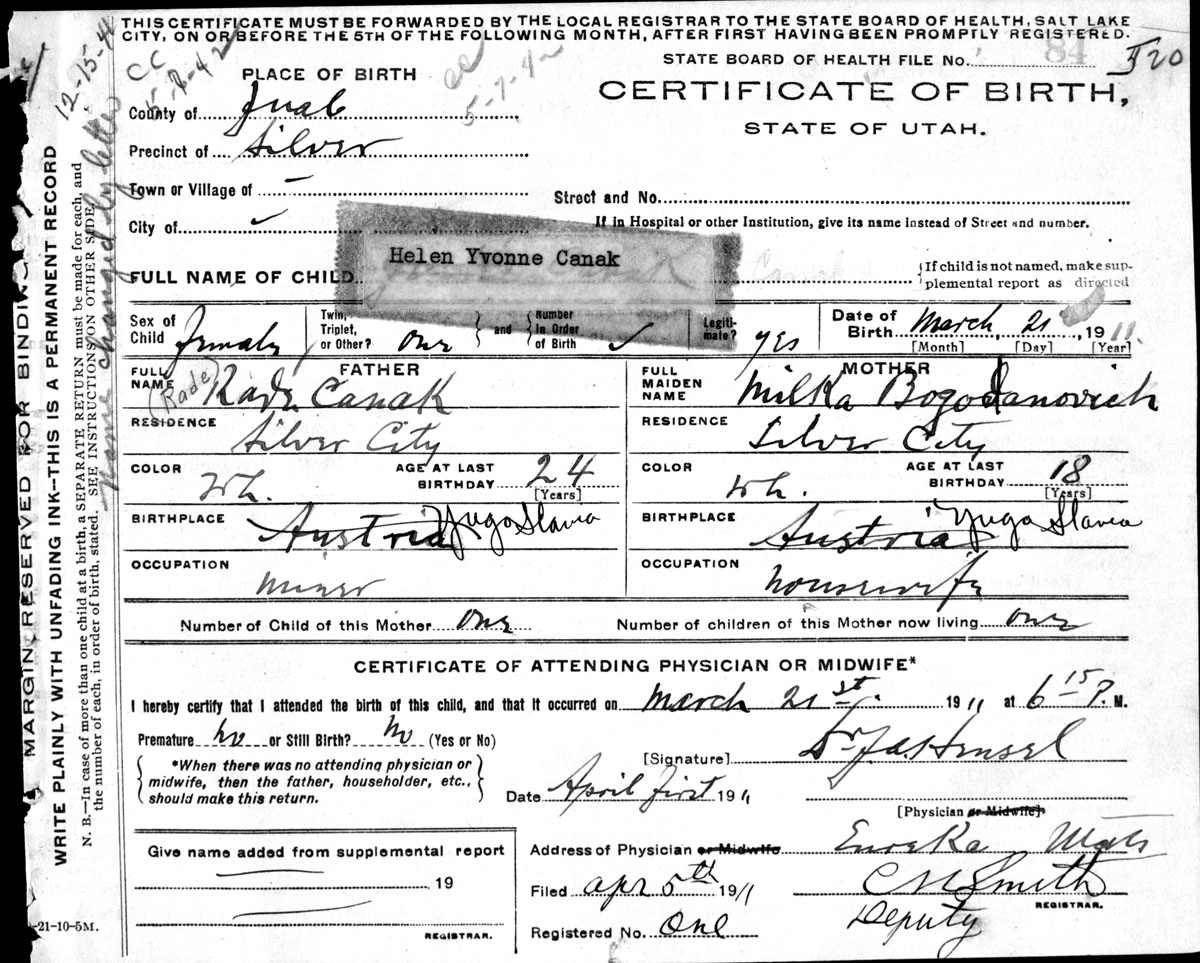 THIS CERTIFICATE MUST BE FORWARDED BY THE LOCAL REGISTRAR TO THE STATE BOARD OF HEALTH, SALT LAKE
CITY, ON OR BEFORE THE 5TH OF THE FOLLOWING MONTH, AFTER FIRST HAVING BEEN PROMPTLY REGISTERED.
12-15-4
CC
5-7-42
STATE BOARD OF HEALTH FILE No. 84 520
PLACE OF BIRTH
CERTIFICATE OF BIRTH,
STATE OF UTAH.
County of Juab
Precinct of Silver
Town or Village of –
Street and No.
City of ✓
If in Hospital or other Institution, give its name instead of Street and number.
Helen Yvonne Canak
FULL NAME OF CHILD
If child is not named, make sup-
plemental report as directed
Sex of Child Female
Twin, Triplet, or Other? One and Number in Order of Birth ✓
Legiti-mate? yes
Date of Birth March 21, 1911
[Month] [Day] [Year]
FATHER
MOTHER
FULL NAME (Rade) Rade Canak
FULL MAIDEN NAME Milka Bogodanovich
RESIDENCE Silver City
RESIDENCE Silver City
COLOR Wh. AGE AT LAST BIRTHDAY 24 [Years]
COLOR Wh. AGE AT LAST BIRTHDAY 18 [Years]
BIRTHPLACE Austria Yugo Slavia
BIRTHPLACE Austria Yugo Slavia
OCCUPATION Miner
OCCUPATION housewife
Number of Child of this Mother One Number of children of this Mother now living One
CERTIFICATE OF ATTENDING PHYSICIAN OR MIDWIFE*
I hereby certify that I attended the birth of this child, and that it occurred on March 21st. 1911 at 6 15 P. M.
Premature no or Still Birth? no (Yes or No)
*When there was no attending physician or
midwife, then the father, householder, etc.,
should make this return.
[Signature] Dr. Hensel
Date April first 1911
[Physician or Midwife]
Give name added from supplemental report
19
REGISTRAR.
Address of Physician or Midwife Eureka Utah
Filed Apr 5th 1911
C N Smith
REGISTRAR.
Deputy
Registered No. One
-21-10-5M.
MARGIN RESERVED FOR BINDING
WRITE PLAINLY WITH UNFADING INK--THIS IS A PERMANENT RECORD
N. B.—In case of more than one child at a birth, a SEPARATE RETURN must be made for each, and
the number of each, in order of birth, stated. SEE INSTRUCTIONS ON OTHER SIDE.
Name changed by letter